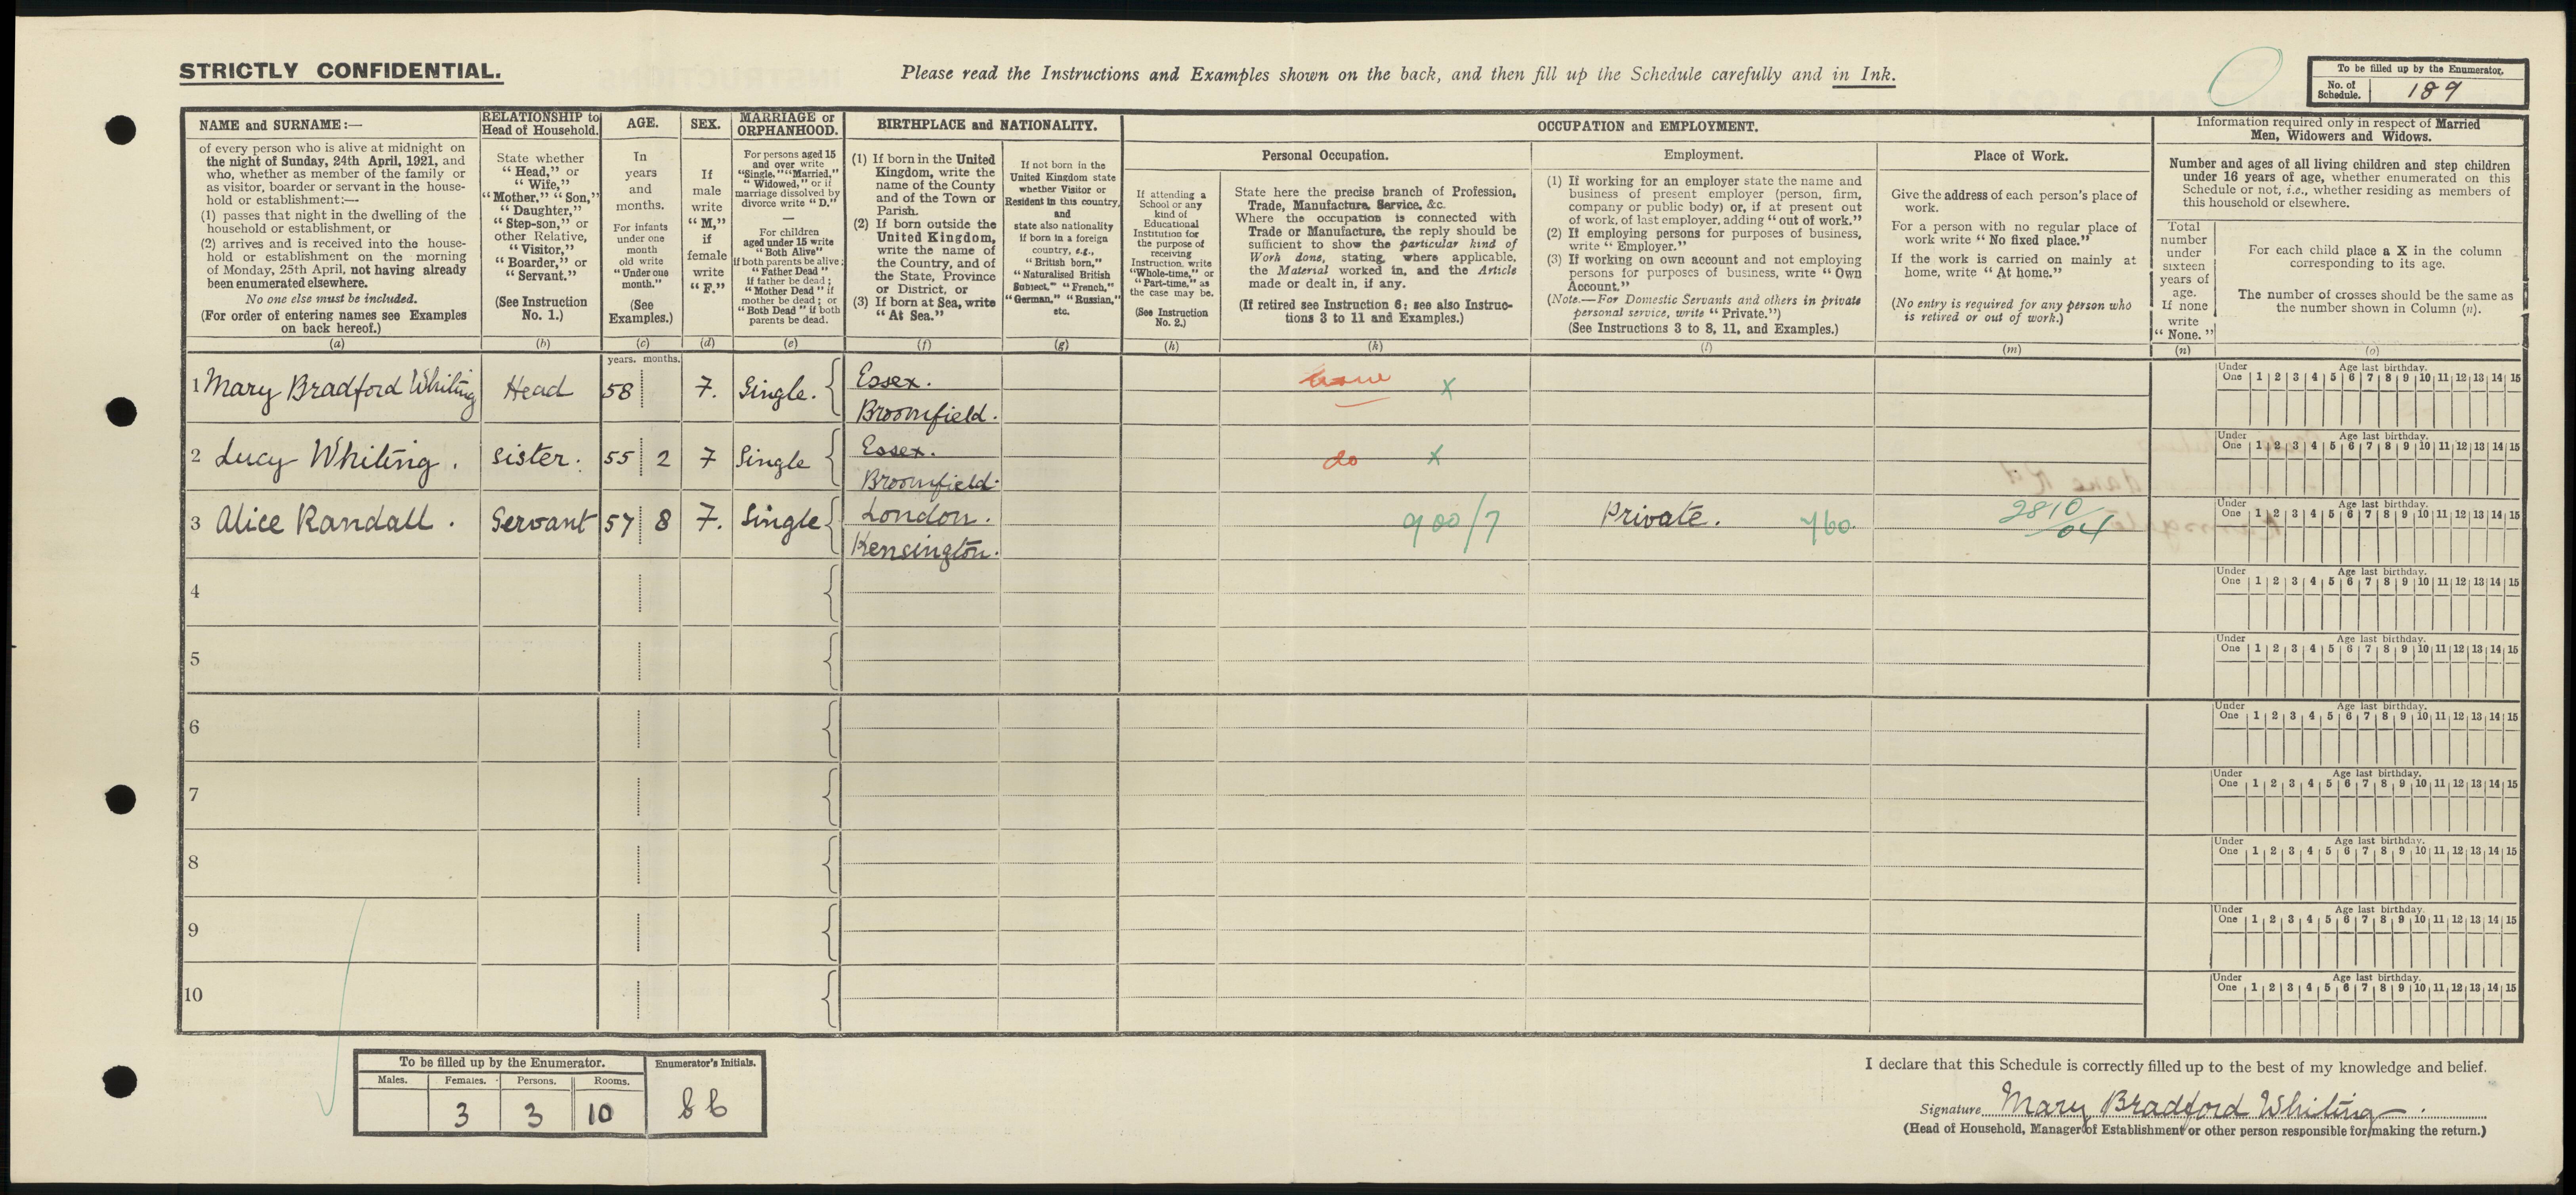 STRICTLY CONFIDENTIAL.
Please read the Instructions and Examples shown on the back, and then fill up the Schedule carefully and in Ink.
To be filled up by the Enumerator.
No. of Schedule. 189
NAME and SURNAME:—
of every person who is alive at midnight on
the night of Sunday, 24th April, 1921, and
who, whether as member of the family or
as visitor, boarder or servant in the house-
hold or establishment:—
(1) passes that night in the dwelling of the
household or establishment, or
(2) arrives and is received into the house-
hold or establishment on the morning
of Monday, 25th April, not having already
been enumerated elsewhere.
No one else must be included.
(For order of entering names see Examples
on back hereof.)
(a)
RELATIONSHIP to
Head of Household.
State whether
"Head," or
"Wife,"
"Mother," "Son,"
"Daughter,"
"Step-son," or
other Relative,
"Visitor,"
"Boarder," or
"Servant."
(See Instruction
No. 1.)
(b)
AGE.
In
years
and
months.
For infants
under one
month
old write
"Under one
month."
(See
Examples.)
(c)
years. months.
SEX.
If
male
write
"M,"
if
female
write
"F."
(d)
MARRIAGE or
ORPHANHOOD.
For persons aged 15
and over write
"Single," "Married,"
"Widowed," or if
marriage dissolved by
divorce write "D."
—
For children
aged under 15 write
"Both Alive"
if both parents be alive;
"Father Dead"
if father be dead;
"Mother Dead" if
mother be dead; or
"Both Dead" if both
parents be dead.
(e)
BIRTHPLACE and NATIONALITY.
(1) If born in the United
Kingdom, write the
name of the County
and of the Town or
Parish.
(2) If born outside the
United Kingdom,
write the name of
the Country, and of
the State, Province
or District, or
(3) If born at Sea, write
"At Sea."
(f)
If not born in the
United Kingdom state
whether Visitor or
Resident in this country,
and
state also nationality
if born in a foreign
country, e.g.,
"British born,"
"Naturalised British
Subject," "French,"
"German," "Russian,"
etc.
(g)
OCCUPATION and EMPLOYMENT.
Personal Occupation.
If attending a
School or any
kind of
Educational
Institution for
the purpose of
receiving
Instruction, write
"Whole-time," or
"Part-time," as
the case may be.
(See Instruction
No. 2.)
(h)
State here the precise branch of Profession,
Trade, Manufacture, Service, &c.
Where the occupation is connected with
Trade or Manufacture, the reply should be
sufficient to show the particular kind of
Work done, stating, where applicable,
the Material worked in, and the Article
made or dealt in, if any.
(If retired see Instruction 6; see also Instruc-
tions 3 to 11 and Examples.)
(k)
Employment.
(1) If working for an employer state the name and
business of present employer (person, firm,
company or public body) or, if at present out
of work, of last employer, adding "out of work."
(2) If employing persons for purposes of business,
write "Employer."
(3) If working on own account and not employing
persons for purposes of business, write "Own
Account."
(Note.—For Domestic Servants and others in private
personal service, write "Private.")
(See Instructions 3 to 8, 11, and Examples.)
(l)
Place of Work.
Give the address of each person's place of
work.
For a person with no regular place of
work write "No fixed place."
If the work is carried on mainly at
home, write "At home."
(No entry is required for any person who
is retired or out of work.)
(m)
Information required only in respect of Married
Men, Widowers and Widows.
Number and ages of all living children and step children
under 16 years of age, whether enumerated on this
Schedule or not, i.e., whether residing as members of
this household or elsewhere.
Total
number
under
sixteen
years of
age.
If none
write
"None."
(n)
For each child place a X in the column
corresponding to its age.
The number of crosses should be the same as
the number shown in Column (n).
(o)
1 Mary Bradford Whiting Head 58 F. Single. Essex. Broomfield. none X
Under One Age last birthday. 1 2 3 4 5 6 7 8 9 10 11 12 13 14 15
2 Lucy Whiting. Sister. 55 2 F Single Essex. Broomfield. do X
Under One Age last birthday. 1 2 3 4 5 6 7 8 9 10 11 12 13 14 15
3 Alice Randall. Servant 57 8 F. Single London. Kensington. 900/7 Private. 760. 2810/04
Under One Age last birthday. 1 2 3 4 5 6 7 8 9 10 11 12 13 14 15
4
Under One Age last birthday. 1 2 3 4 5 6 7 8 9 10 11 12 13 14 15
5
Under One Age last birthday. 1 2 3 4 5 6 7 8 9 10 11 12 13 14 15
6
Under One Age last birthday. 1 2 3 4 5 6 7 8 9 10 11 12 13 14 15
7
Under One Age last birthday. 1 2 3 4 5 6 7 8 9 10 11 12 13 14 15
8
Under One Age last birthday. 1 2 3 4 5 6 7 8 9 10 11 12 13 14 15
9
Under One Age last birthday. 1 2 3 4 5 6 7 8 9 10 11 12 13 14 15
10
Under One Age last birthday. 1 2 3 4 5 6 7 8 9 10 11 12 13 14 15
To be filled up by the Enumerator.
Males. Females. Persons. Rooms.
3 3 10
Enumerator's Initials.
I declare that this Schedule is correctly filled up to the best of my knowledge and belief.
Signature Mary Bradford Whiting.
(Head of Household, Manager of Establishment or other person responsible for making the return.)